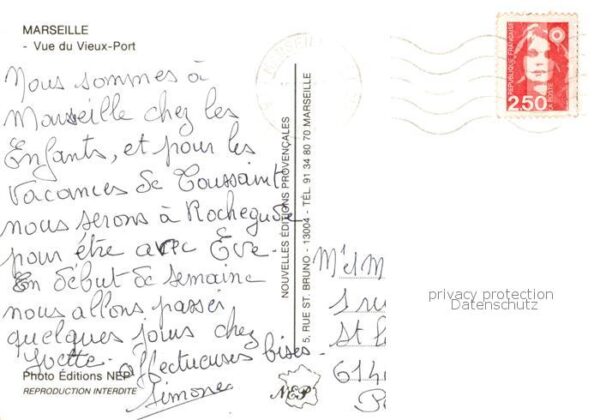 MARSEILLE
- Vue du Vieux-Port
Nous sommes à
Marseille chez les
Enfants, et pour les
vacances de Toussaint
nous serons à Rochegude
pour être avec Eve-
En début de semaine
nous allons passer
quelques jours chez
Yvette. Affectueuses bises.
Simone
Photo Éditions NEP
REPRODUCTION INTERDITE
NOUVELLES ÉDITIONS PROVENÇALES
5, RUE ST. BRUNO - 13004 - TÉL. 91 34 80 70 MARSEILLE
NEP
RÉPUBLIQUE FRANÇAISE
2,50
LA POSTE
MARSEILLE
M et M
St
614
privacy protection
Datenschutz